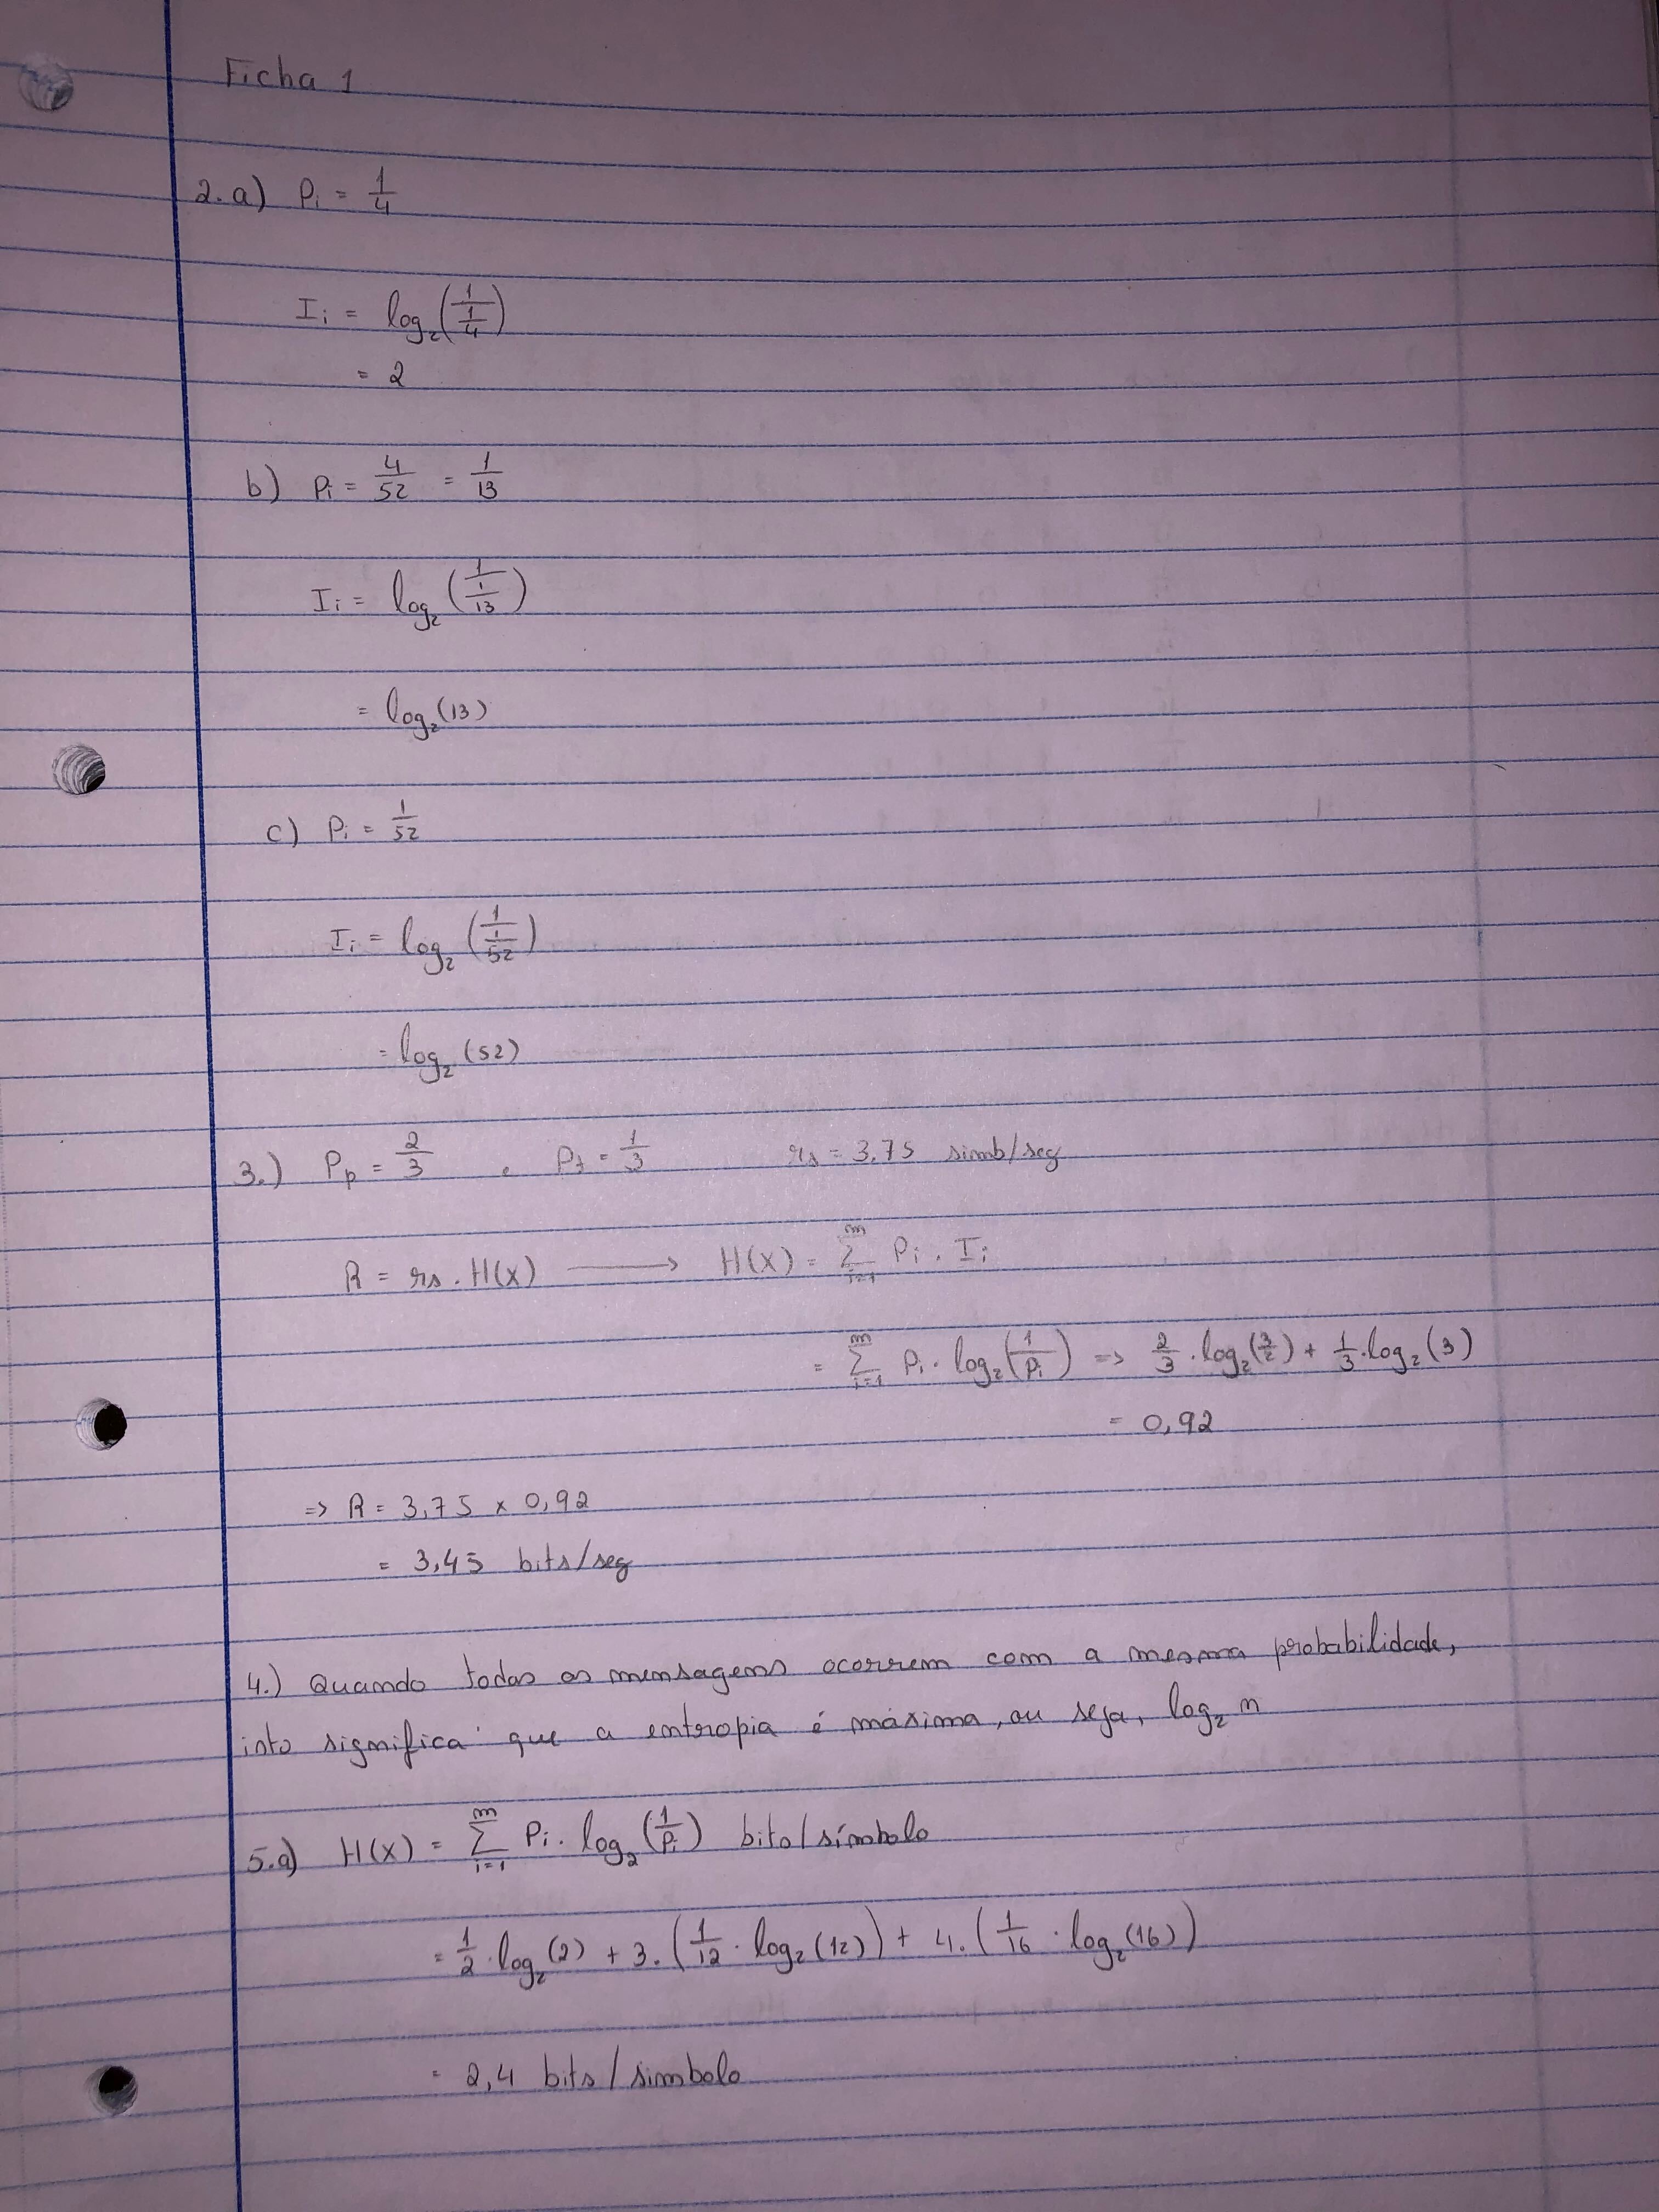 Ficha 1
2.a) Pi = 1/4
Ii = log₂(1/(1/4))
= 2
b) Pi = 4/52 = 1/13
Ii = log₂(1/(1/13))
= log₂(13)
c) Pi = 1/52
Ii = log₂(1/(1/52))
= log₂(52)
3.) Pp = 2/3 , Pt = 1/3 rs = 3,75 simb/seg
R = rs . H(X) ⟶ H(X) = ∑_{i=1}^{m} Pi . Ii
= ∑_{i=1}^{m} Pi . log₂(1/Pi) => 2/3 . log₂(3/2) + 1/3 . log₂(3)
= 0,92
=> R = 3,75 x 0,92
= 3,45 bits/seg
4.) Quando todas as mensagens ocorrem com a mesma probabilidade,
isto significa que a entropia é máxima, ou seja, log₂ n
5.a) H(X) = ∑_{i=1}^{m} Pi . log₂(1/Pi) bits/símbolo
= 1/2 . log₂(2) + 3 . (1/12 . log₂(12)) + 4 . (1/16 . log₂(16))
= 2,4 bits/simbolo